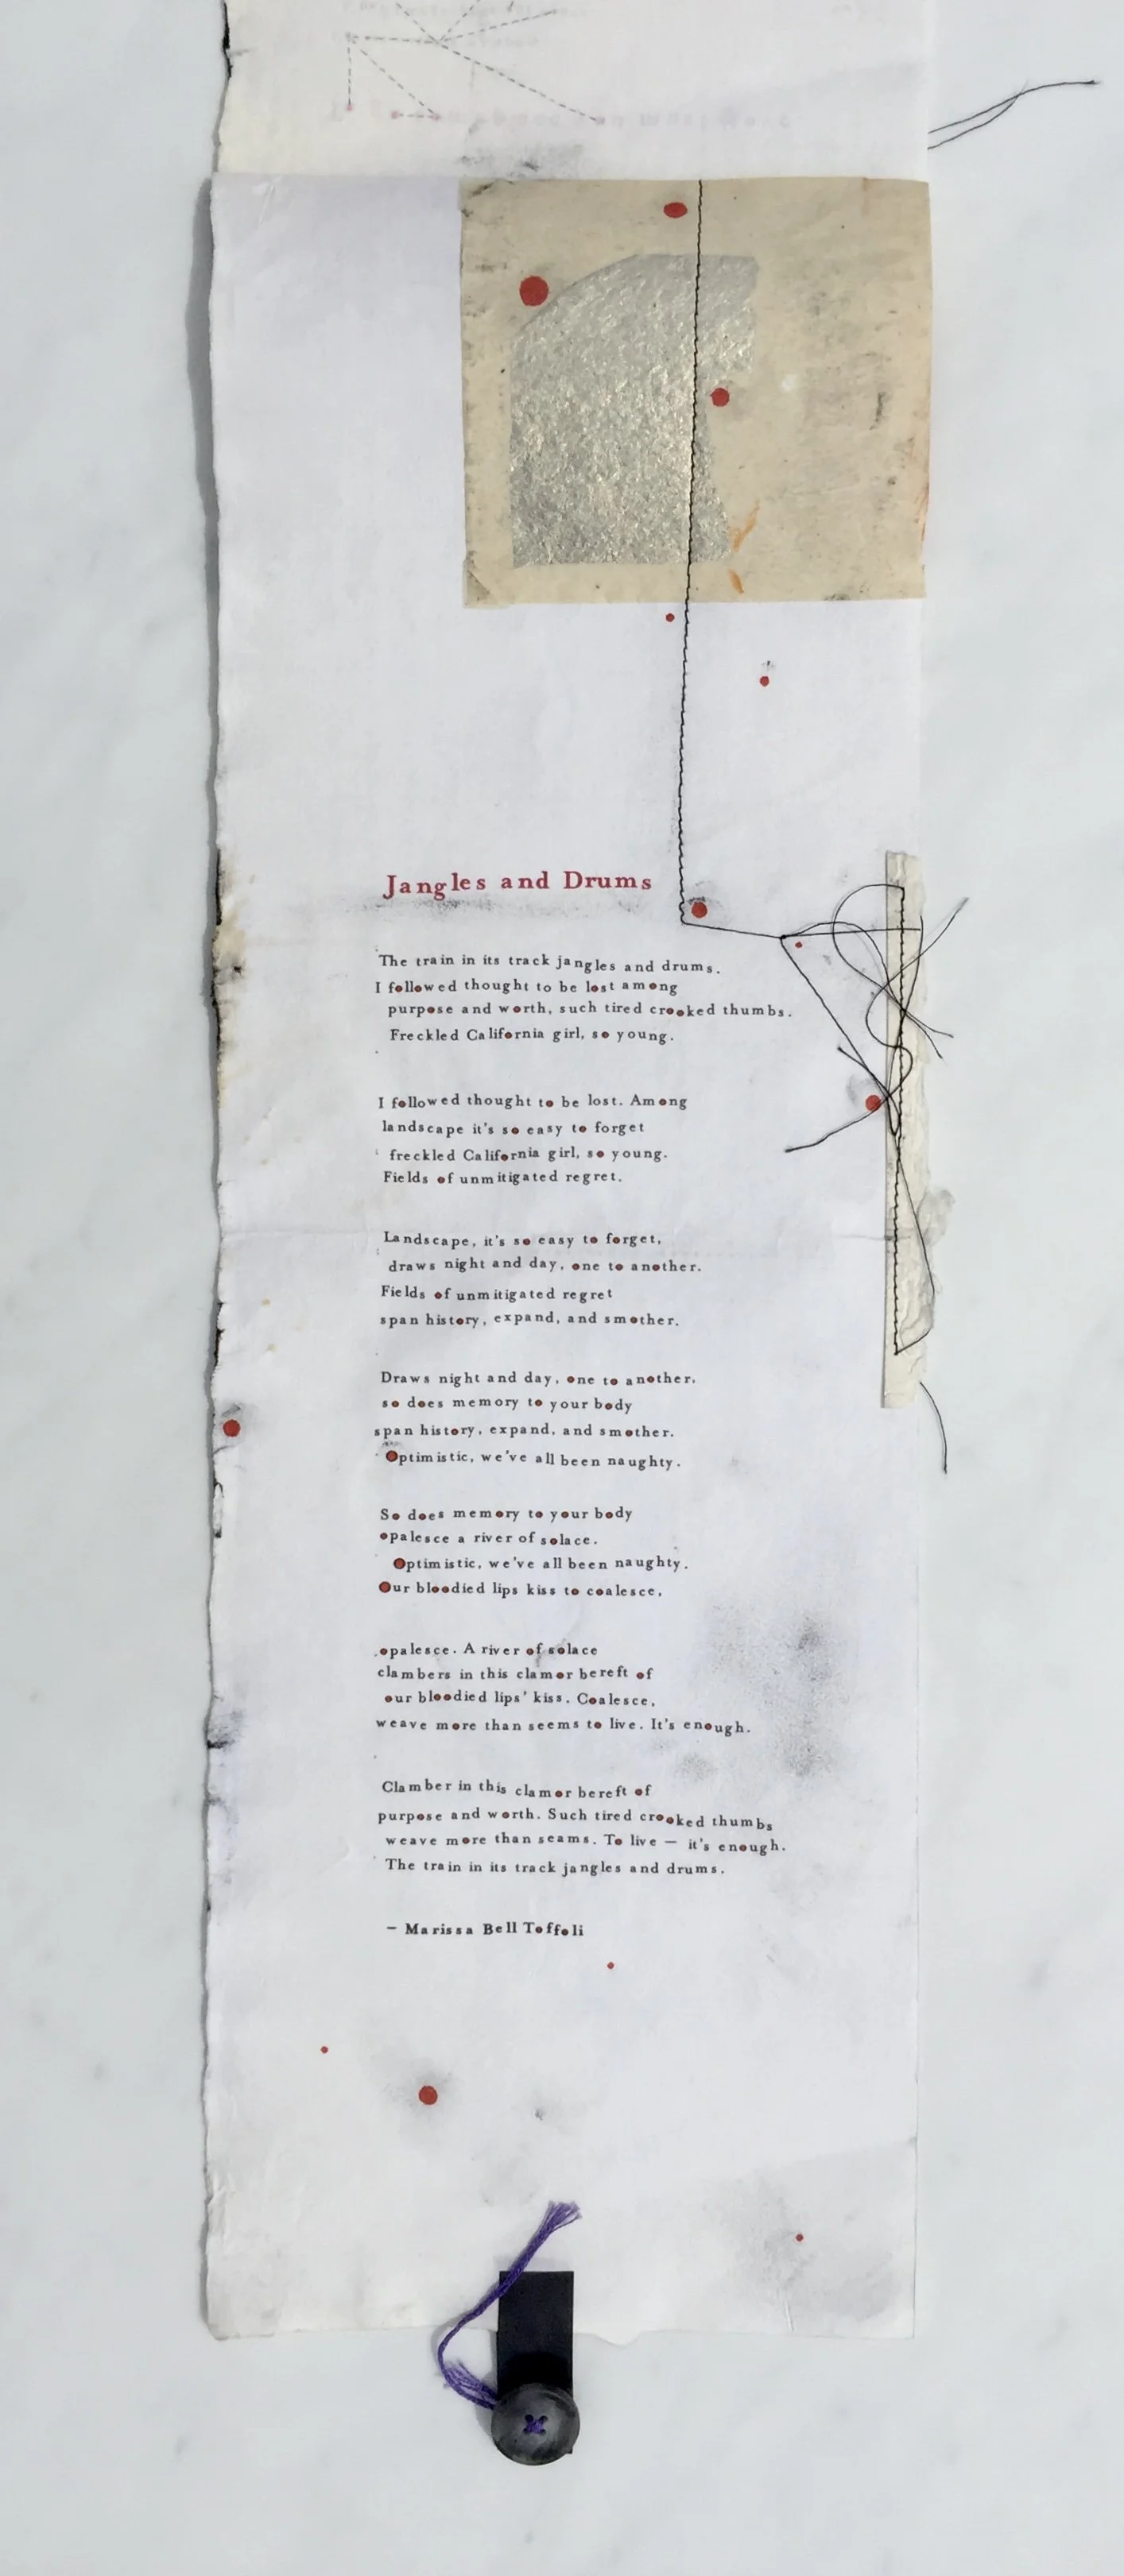 Jangles and Drums
The train in its track jangles and drums.
I followed thought to be lost among
purpose and worth, such tired crooked thumbs.
Freckled California girl, so young.
I followed thought to be lost. Among
landscape it's so easy to forget
freckled California girl, so young.
Fields of unmitigated regret.
Landscape, it's so easy to forget,
draws night and day, one to another.
Fields of unmitigated regret
span history, expand, and smother.
Draws night and day, one to another,
so does memory to your body
span history, expand, and smother.
Optimistic, we've all been naughty.
So does memory to your body
opalesce a river of solace.
Optimistic, we've all been naughty.
Our bloodied lips kiss to coalesce,
opalesce. A river of solace
clambers in this clamor bereft of
our bloodied lips' kiss. Coalesce,
weave more than seems to live. It's enough.
Clamber in this clamor bereft of
purpose and worth. Such tired crooked thumbs
weave more than seams. To live — it's enough.
The train in its track jangles and drums.
— Marissa Bell Toffoli